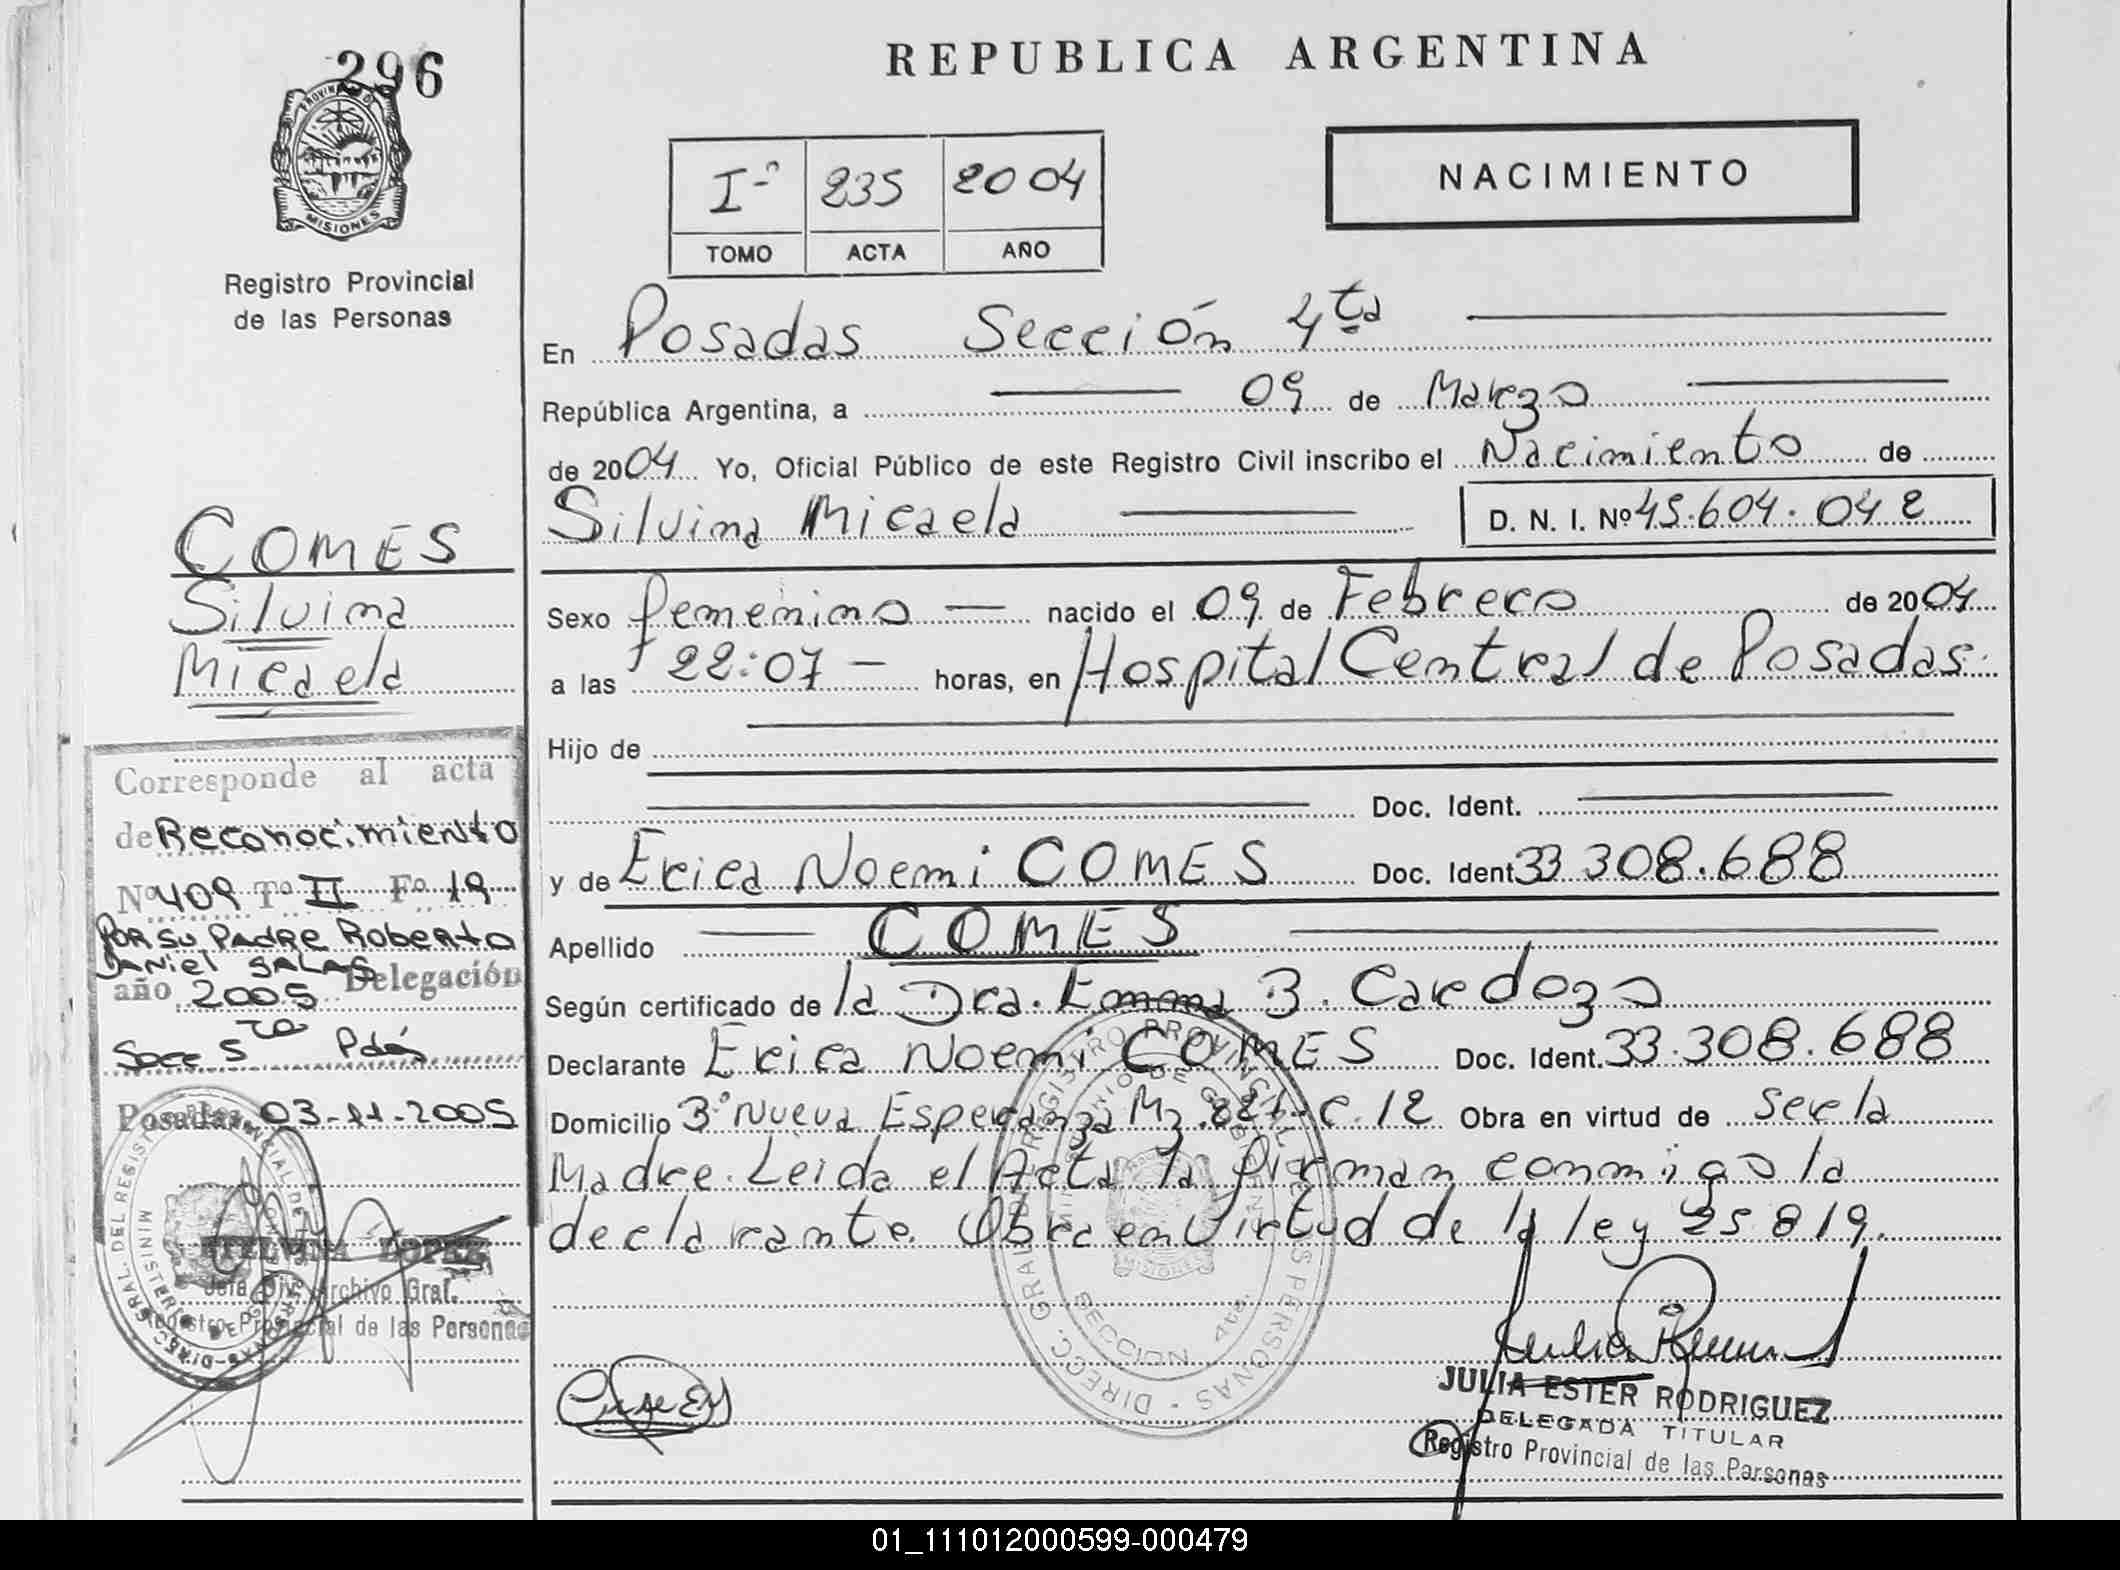 296
PROVINCIA D
MISIONES
Registro Provincial
de las Personas
REPUBLICA ARGENTINA
I-º 235 2004
TOMO ACTA AÑO
NACIMIENTO
En Posadas Sección 4ta
República Argentina, a 09 de Marzo
de 2004 Yo, Oficial Público de este Registro Civil inscribo el Nacimiento de
Silvina Micaela D. N. I. Nº 45.604.042
COMES
Silvina
Micaela
Sexo femenino nacido el 09 de Febrero de 2004
a las 22:07 horas, en Hospital Central de Posadas.
Hijo de
Doc. Ident.
y de Erica Noemi COMES Doc. Ident 33 308.688
Apellido COMES
Según certificado de la Dra. B. Cardozo
Declarante Erica Noemi COMES Doc. Ident. 33.308.688
Domicilio Bº Nueva Esperanza Mz. C. 12 Obra en virtud de ser la
Madre. Leida el Acta la firman conmigo la
declarante. Obra en Virtud de la ley 25 819.
Corresponde al acta
de Reconocimiento
Nº 409 Tº II Fº 19
POR SU PADRE Roberto
DANiel SALAS Delegación
año 2005
Secc 5ta Pdas
Posadas, 03-11-2005
LOPEZ
Jefa Div. Archivo Gral.
Registro Provincial de las Personas
DIRECC. GRAL. DEL REGISTRO PROVINCIAL DE LAS PERSONAS
MINISTERIO DE GOBIERNO
MISIONES
SECCION 4ta.
JULIA ESTER RODRIGUEZ
DELEGADA TITULAR
Registro Provincial de las Personas
01_111012000599-000479